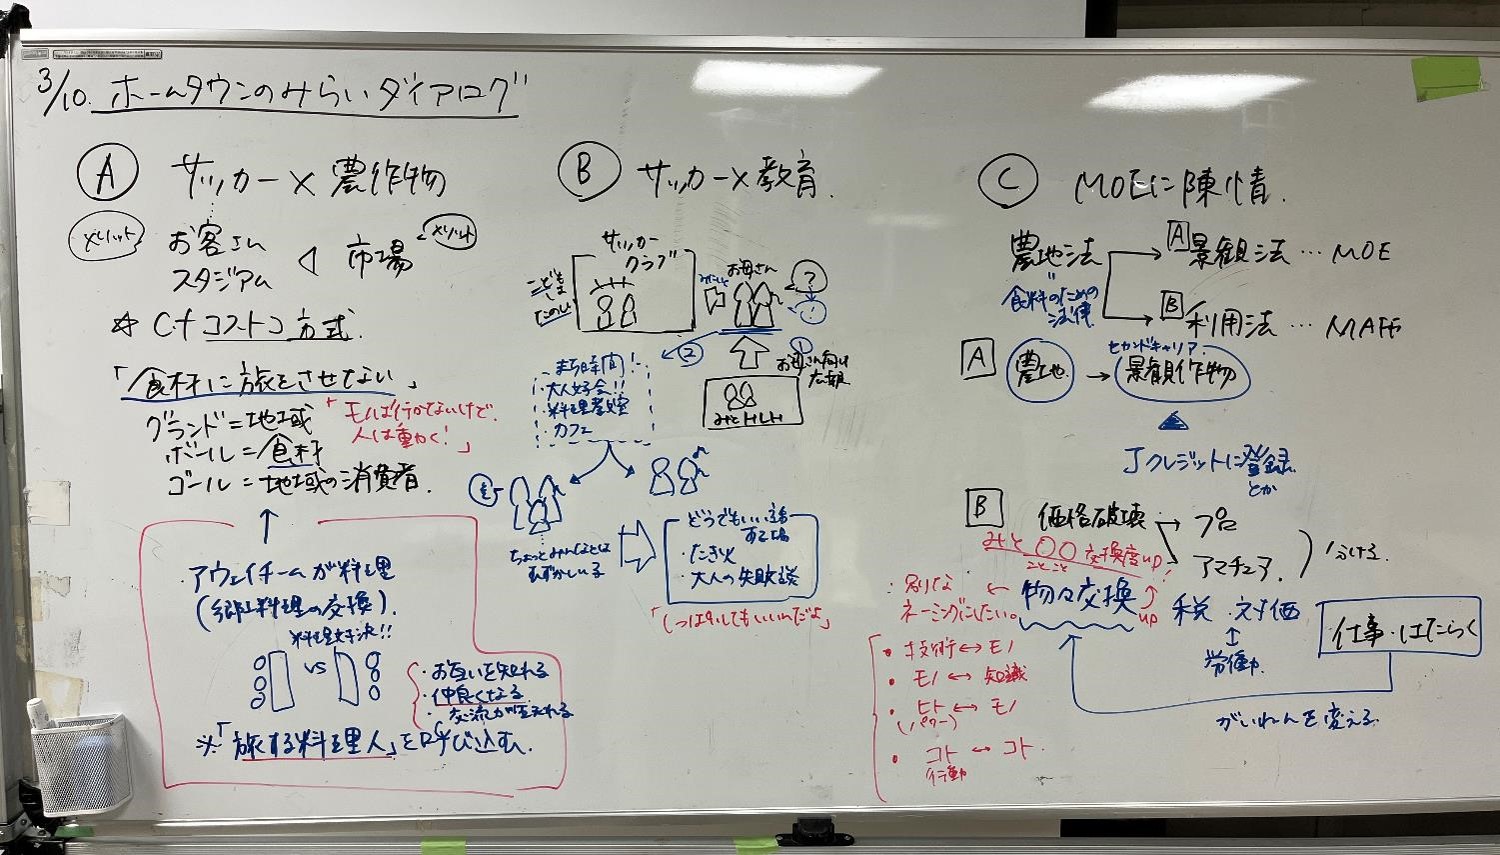 3/10. ホームタウンのみらいダイアログ
A サッカー×農作物
メリット
お客さん
スタジアム
市場
メリット
☆ Cf コストコ方式
「食材に旅をさせない」
グランド=地域
ボール=食材
ゴール=地域の消費者
「モノは行かないけど、
人は動く!」
・アウェイチームが料理
(郷土料理の交換)
料理対決!!
VS
・お互いを知れる
・仲良くなる
・交流が生まれる
※「旅する料理人」を呼び込む。
B サッカー×教育
サッカー
クラブ
こども
たのしい
お母さん
?
!
②
①
お母さん向け
広報
みとHLH
・まち時間!
・大人好会!!
・料理教室
・カフェ
ちょっとみんなとは
むずかしい子
どうでもいい話
する場
・たき火
・大人の失敗談
「しっぱいしてもいいんだよ」
C MOEに陳情
農地法
食料のための
法律
A 景観法…MOE
B 利用法…MAFF
A 農地 → 景観作物
セカンドキャリア
Jクレジットに登録
とか
B 価格破壊
プロ
アマチュア
分ける
みと〇〇交換度up!
ことこと
物々交換
up
別な
ネーミングにしたい。
税・対価
労働
仕事・はたらく
がいねんを変える
・技術↔モノ
・モノ↔知識
・ヒト↔モノ
(パワー)
・コト↔コト
行動